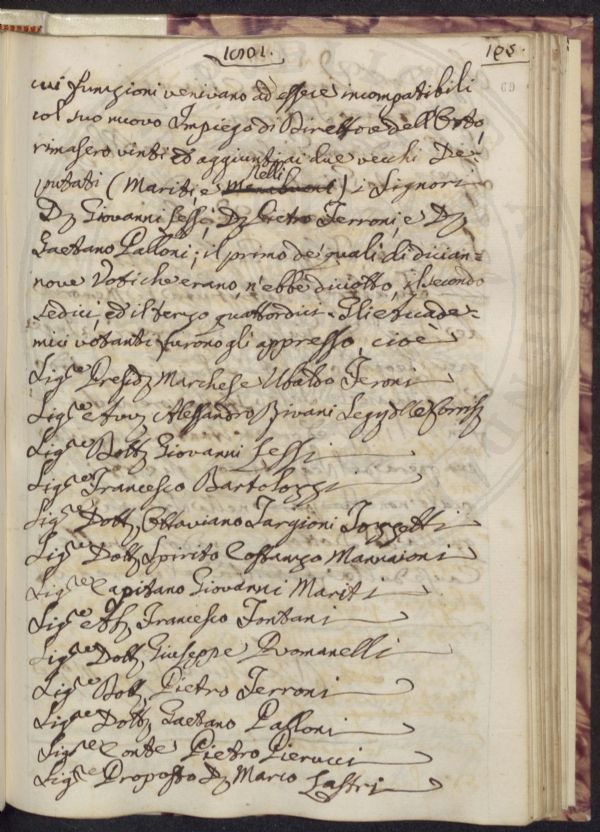 1801.
195.
69
cui funzioni venivano ad essere incompatibili
col suo nuovo Impiego di Direttore dell'Orto,
rimasero vinti ed aggiunti ai due vecchi De=
putati (Mariti, e Menabuoni) i Signori
nelli
D. Giovanni Lessi, D. Pietro Ferroni, e D.
Gaetano Palloni; il primo de' quali di dician=
nove Voti che erano, n'ebbe diciotto, il secondo
sedici, ed il terzo quattordici. Gli Accade=
mici votanti furono gli appresso, cioè
Sig.re Presid. Marchese Ubaldo Feroni
Sig.re Avv. Alessandro Rivani
Sig.re Dott. Giovanni Lessi
Sig.re Francesco Bartolozzi
Sig.re Dott. Ottaviano Targioni Tozzetti
Sig.re Dott. Spirito Costanzo Mannaioni
Sig.re Capitano Giovanni Mariti
Sig.re Ab. Francesco Fontani
Sig.re Dott. Giuseppe Romanelli
Sig.re Dott. Pietro Ferroni
Sig.re Dott. Gaetano Palloni
Sig.re Conte Pietro Pierucci
Sig.re Proposto D. Marco Lastri